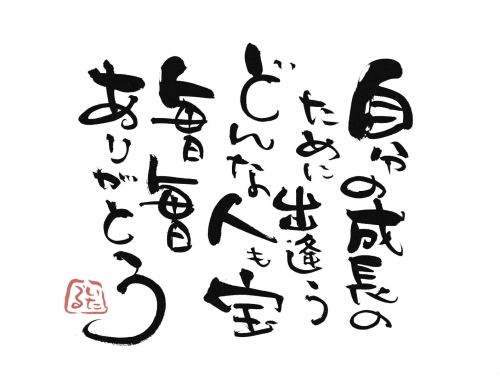 自分の成長の
ために出逢う
どんな人も宝
毎日毎日
ありがとう